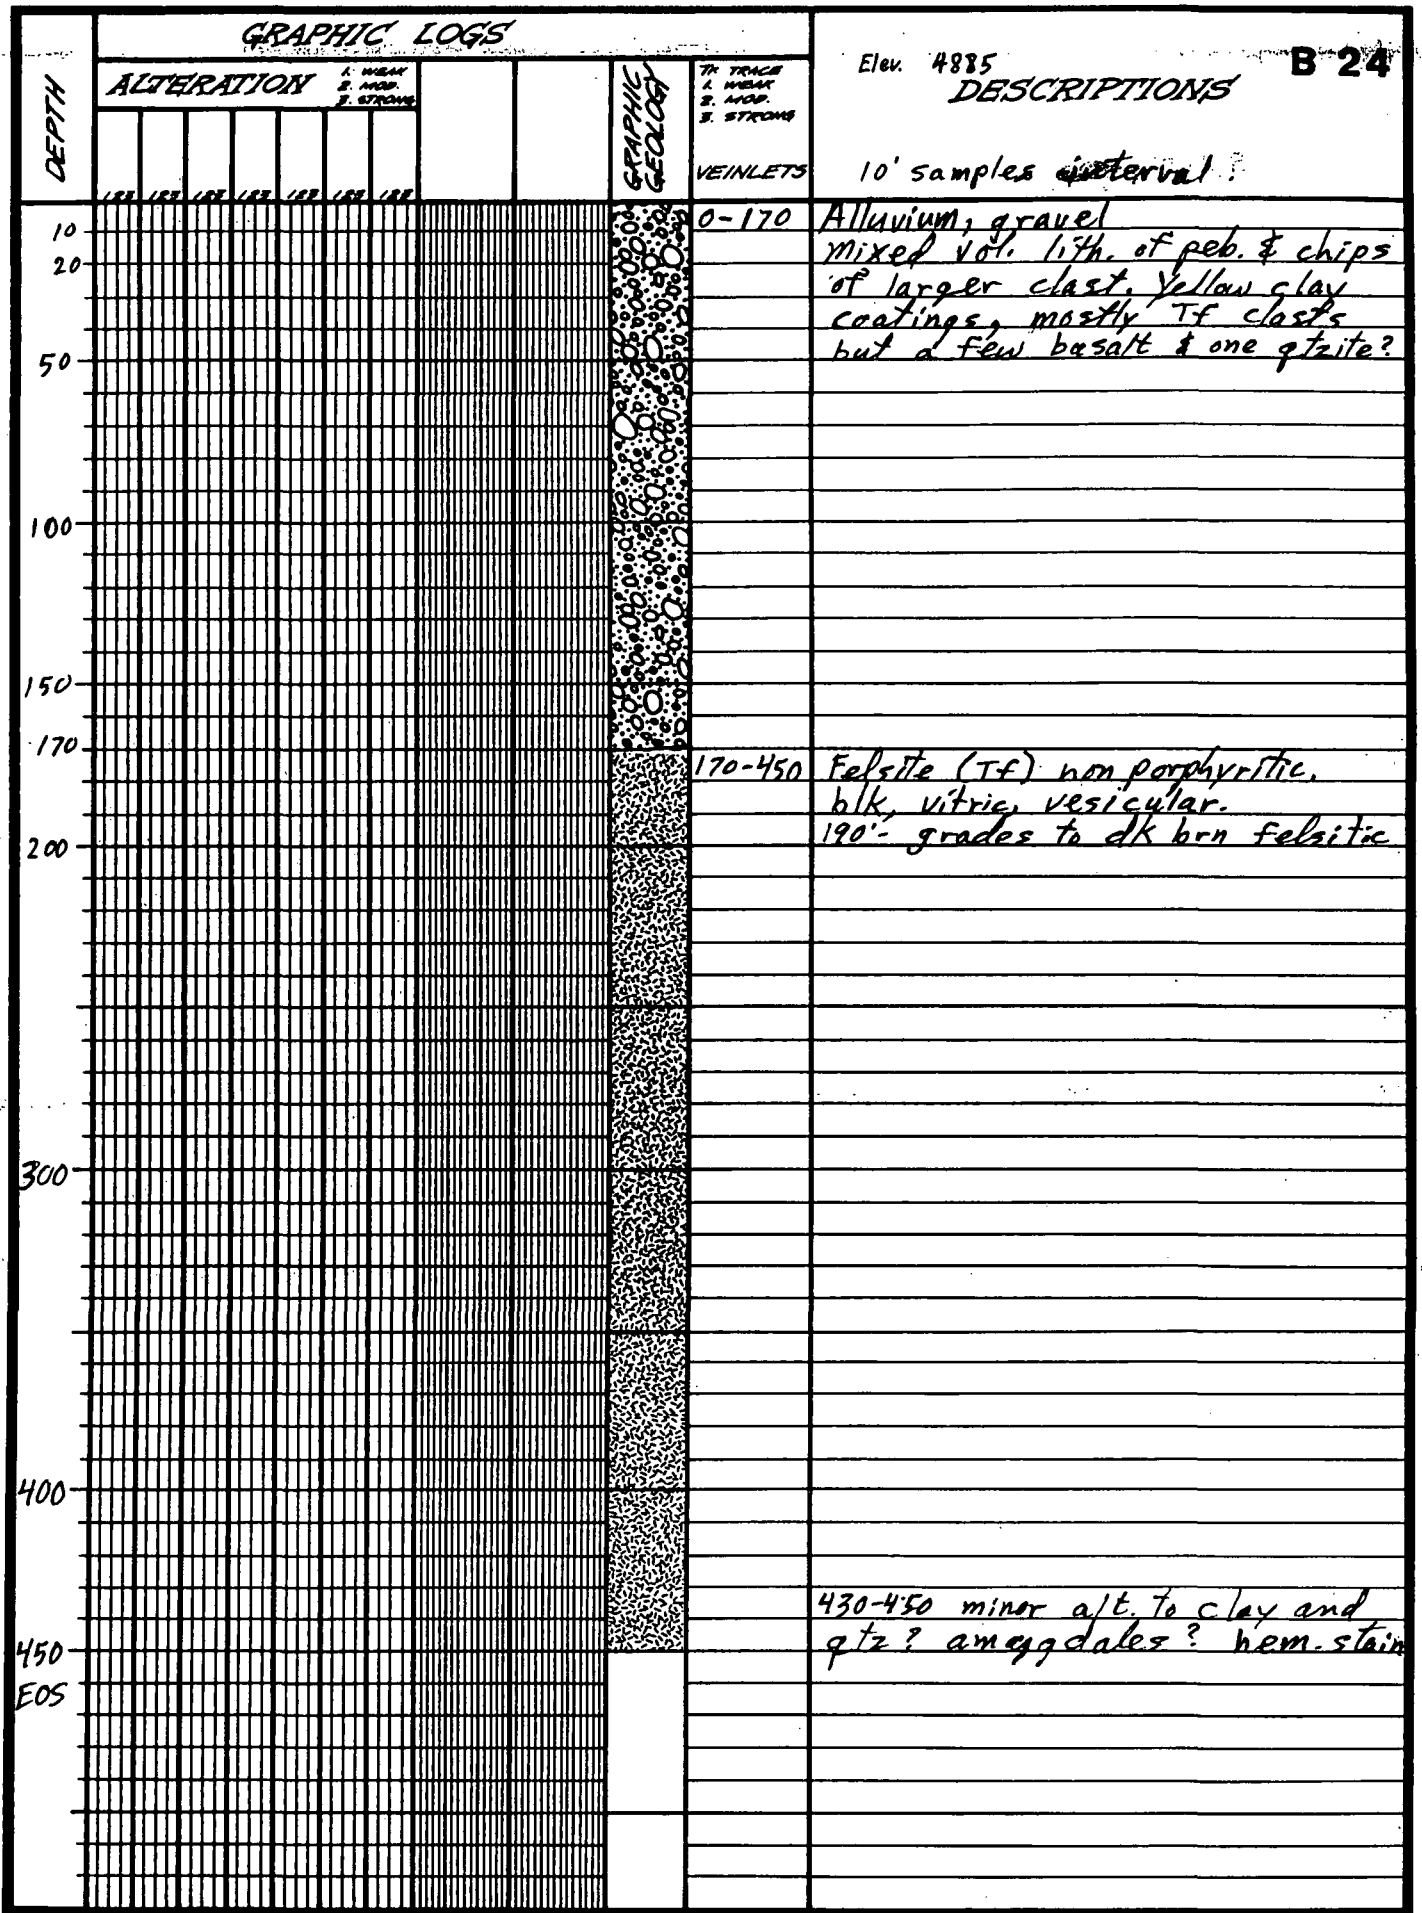 GRAPHIC LOGS
DEPTH
ALTERATION
1. WEAK
2. MOD.
3. STRONG
123 123 123 123 123 123 123
GRAPHIC
GEOLOGY
TR TRACE
1. WEAK
2. MOD.
3. STRONG
VEINLETS
Elev. 4885
B 24
DESCRIPTIONS
10' samples interval
10
20
50
100
150
170
200
300
400
450
EOS
0-170 Alluvium, gravel
mixed vol. lith. of peb. & chips
of larger clast. Yellow clay
coatings, mostly Tf clasts
but a few basalt & one qtzite?
170-450 Felsite (Tf) non porphyritic,
blk, vitric, vesicular.
190'- grades to dk brn felsitic
430-450 minor alt. to clay and
qtz? amygdales? hem. stain